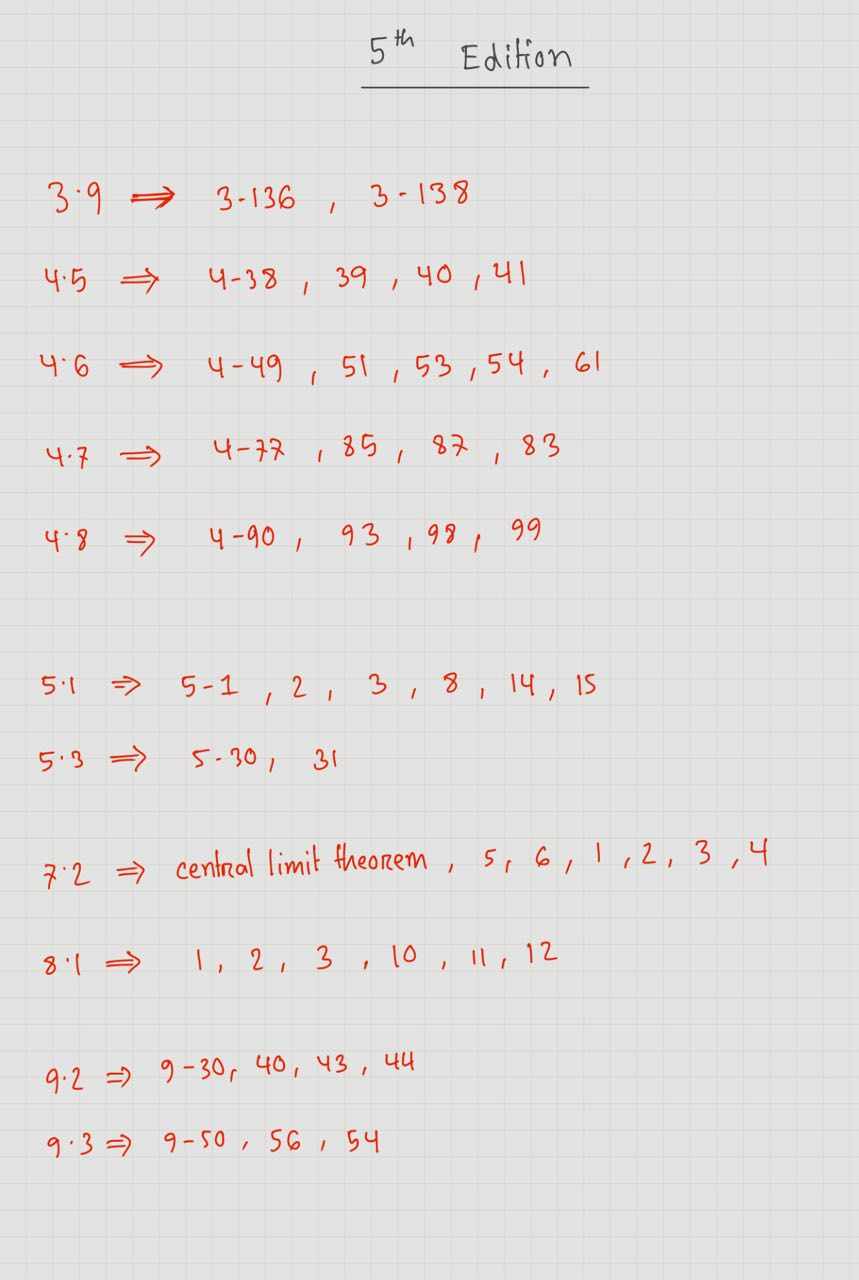 5th Edition
3.9 ⇒ 3-136, 3-138
4.5 ⇒ 4-38, 39, 40, 41
4.6 ⇒ 4-49, 51, 53, 54, 61
4.7 ⇒ 4-77, 85, 87, 83
4.8 ⇒ 4-90, 93, 98, 99
5.1 ⇒ 5-1, 2, 3, 8, 14, 15
5.3 ⇒ 5-30, 31
7.2 ⇒ central limit theorem, 5, 6, 1, 2, 3, 4
8.1 ⇒ 1, 2, 3, 10, 11, 12
9.2 ⇒ 9-30, 40, 43, 44
9.3 ⇒ 9-50, 56, 54